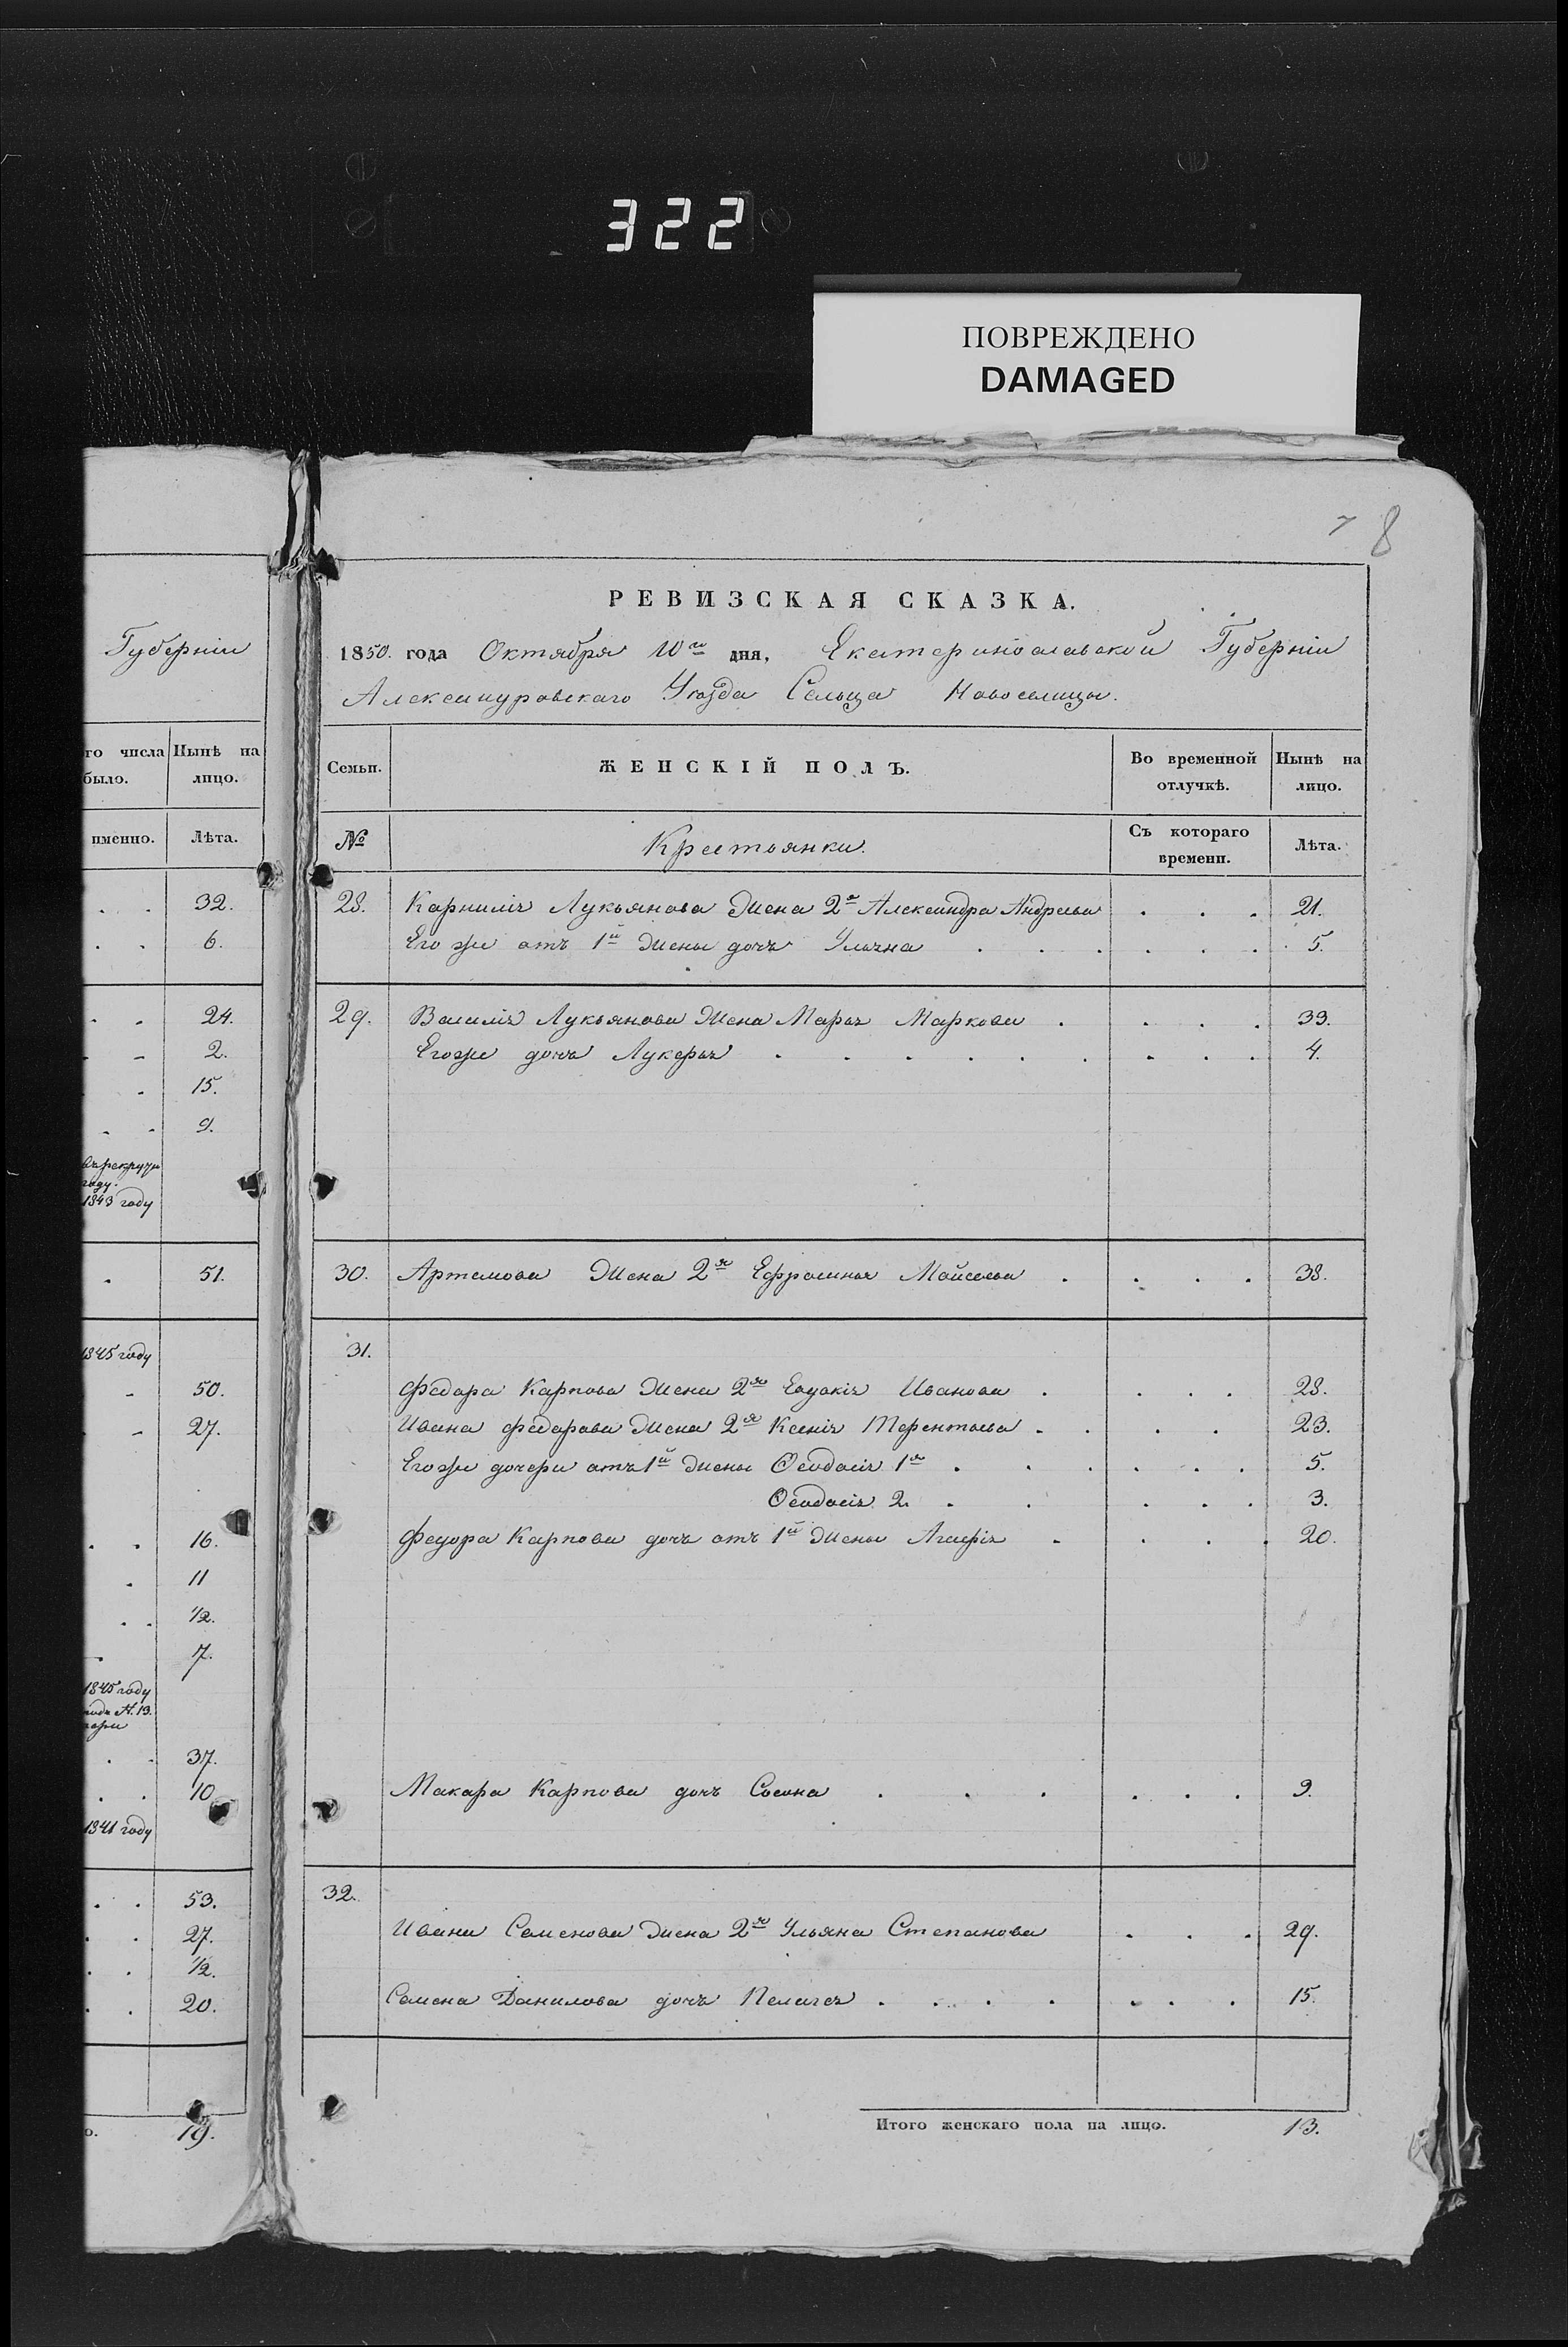 322
ПОВРЕЖДЕНО
DAMAGED
7 8
Губерніи
го числа было.
Нынѣ на лицо.
именно.
Лѣта.
32.
6.
24.
2.
15.
9.
году.
1843 году
51.
1845 году
50.
27.
16.
11
1/2.
7.
1845 году
37.
10
1841 году
53.
27.
1/2.
20.
о. 19.
РЕВИЗСКАЯ СКАЗКА.
1850. года Октября 10го дня, Екатеринославской Губерніи
Александровскаго Уѣзда Сельца Новоселицы.
Семьи.
ЖЕНСКІЙ ПОЛЪ.
Во временной отлучкѣ.
Нынѣ на лицо.
№
Крестьянки.
Съ котораго времени.
Лѣта.
28. Карнилія Лукьянова жена 2я Александра Андреева 21.
Его же отъ 1й жены дочь Ульяна 5.
29. Василія Лукьянова жена Марья Маркова 33.
Егоже дочь Лукерья 4.
30. Артемова жена 2я Ефросинья Мойсеева 38.
31.
Федора Карпова жена 2я Евдокія Иванова 28.
Ивана Федорова жена 2я Ксенія Терентьева 23.
Егоже дочери отъ 1й жены Ѳеодосія 1я 5.
Ѳеодосія 2. 3.
Федора Карпова дочь отъ 1й жены Агафія 20.
Макара Карпова дочь Сосона 9.
32.
Ивана Семенова жена 2я Ульяна Степанова 29.
Семена Данилова дочь Пелагея 15.
Итого женскаго пола на лицо. 13.